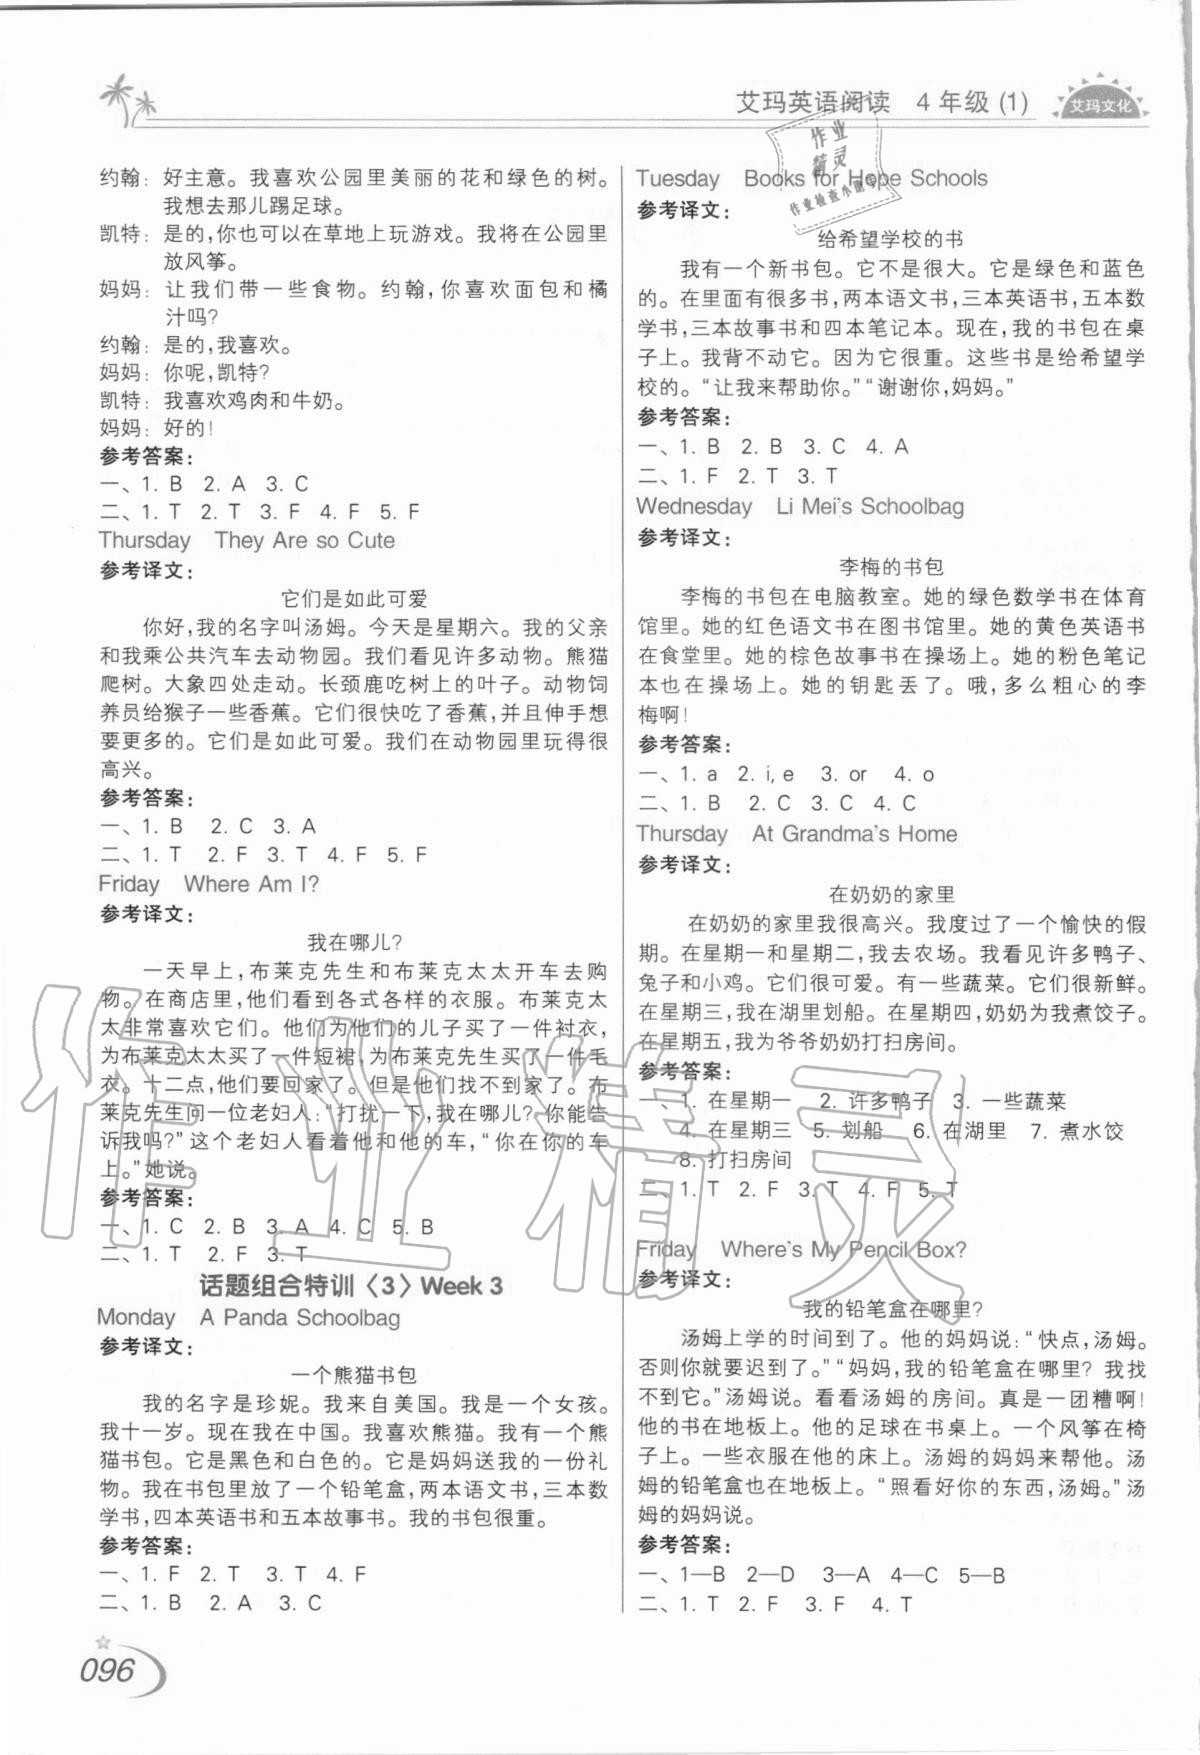 艾玛英语阅读 4 年级 (1)
艾玛文化
约翰：好主意。我喜欢公园里美丽的花和绿色的树。
我想去那儿踢足球。
凯特：是的,你也可以在草地上玩游戏。我将在公园里
放风筝。
妈妈：让我们带一些食物。约翰,你喜欢面包和橘
汁吗?
约翰：是的,我喜欢。
妈妈：你呢,凯特?
凯特：我喜欢鸡肉和牛奶。
妈妈：好的!
参考答案:
一、1. B 2. A 3. C
二、1. T 2. T 3. F 4. F 5. F
Thursday They Are so Cute
参考译文:
它们是如此可爱
你好,我的名字叫汤姆。今天是星期六。我的父亲
和我乘公共汽车去动物园。我们看见许多动物。熊猫
爬树。大象四处走动。长颈鹿吃树上的叶子。动物饲
养员给猴子一些香蕉。它们很快吃了香蕉,并且伸手想
要更多的。它们是如此可爱。我们在动物园里玩得很
高兴。
参考答案:
一、1. B 2. C 3. A
二、1. T 2. F 3. T 4. F 5. F
Friday Where Am I?
参考译文:
我在哪儿?
一天早上,布莱克先生和布莱克太太开车去购
物。在商店里,他们看到各式各样的衣服。布莱克太
太非常喜欢它们。他们为他们的儿子买了一件衬衣,
为布莱克太太买了一件短裙,为布莱克先生买了一件毛
衣。十二点,他们要回家了。但是他们找不到家了。布
莱克先生问一位老妇人:“打扰一下,我在哪儿?你能告
诉我吗?”这个老妇人看着他和他的车,“你在你的车
上。”她说。
参考答案:
一、1. C 2. B 3. A 4. C 5. B
二、1. T 2. F 3. T
话题组合特训〈3〉Week 3
Monday A Panda Schoolbag
参考译文:
一个熊猫书包
我的名字是珍妮。我来自美国。我是一个女孩。
我十一岁。现在我在中国。我喜欢熊猫。我有一个熊
猫书包。它是黑色和白色的。它是妈妈送我的一份礼
物。我在书包里放了一个铅笔盒,两本语文书,三本数
学书,四本英语书和五本故事书。我的书包很重。
参考答案:
一、1. F 2. T 3. T 4. F
二、1. B 2. A 3. C
096
Tuesday Books for Hope Schools
参考译文:
给希望学校的书
我有一个新书包。它不是很大。它是绿色和蓝色
的。在里面有很多书,两本语文书,三本英语书,五本数
学书,三本故事书和四本笔记本。现在,我的书包在桌
子上。我背不动它。因为它很重。这些书是给希望学
校的。“让我来帮助你。”“谢谢你,妈妈。”
参考答案:
一、1. B 2. B 3. C 4. A
二、1. F 2. T 3. T
Wednesday Li Mei's Schoolbag
参考译文:
李梅的书包
李梅的书包在电脑教室。她的绿色数学书在体育
馆里。她的红色语文书在图书馆里。她的黄色英语书
在食堂里。她的棕色故事书在操场上。她的粉色笔记
本也在操场上。她的钥匙丢了。哦,多么粗心的李
梅啊!
参考答案:
一、1. a 2. i, e 3. or 4. o
二、1. B 2. C 3. C 4. C
Thursday At Grandma's Home
参考译文:
在奶奶的家里
在奶奶的家里我很高兴。我度过了一个愉快的假
期。在星期一和星期二,我去农场。我看见许多鸭子、
兔子和小鸡。它们很可爱。有一些蔬菜。它们很新鲜。
在星期三,我在湖里划船。在星期四,奶奶为我煮饺子。
在星期五,我为爷爷奶奶打扫房间。
参考答案:
一、1. 在星期一 2. 许多鸭子 3. 一些蔬菜
4. 在星期三 5. 划船 6. 在湖里 7. 煮水饺
8. 打扫房间
二、1. T 2. F 3. T 4. F 5. T
Friday Where's My Pencil Box?
参考译文:
我的铅笔盒在哪里?
汤姆上学的时间到了。他的妈妈说:“快点,汤姆。
否则你就要迟到了。”“妈妈,我的铅笔盒在哪里?我找
不到它。”汤姆说。看看汤姆的房间。真是一团糟啊!
他的书在地板上。他的足球在书桌上。一个风筝在椅
子上。一些衣服在他的床上。汤姆的妈妈来帮他。汤
姆的铅笔盒也在地板上。“照看好你的东西,汤姆。”汤
姆的妈妈说。
参考答案:
一、1—B 2—D 3—A 4—C 5—B
二、1. T 2. F 3. F 4. T
作业
精灵
作业检查小助手
作业精灵